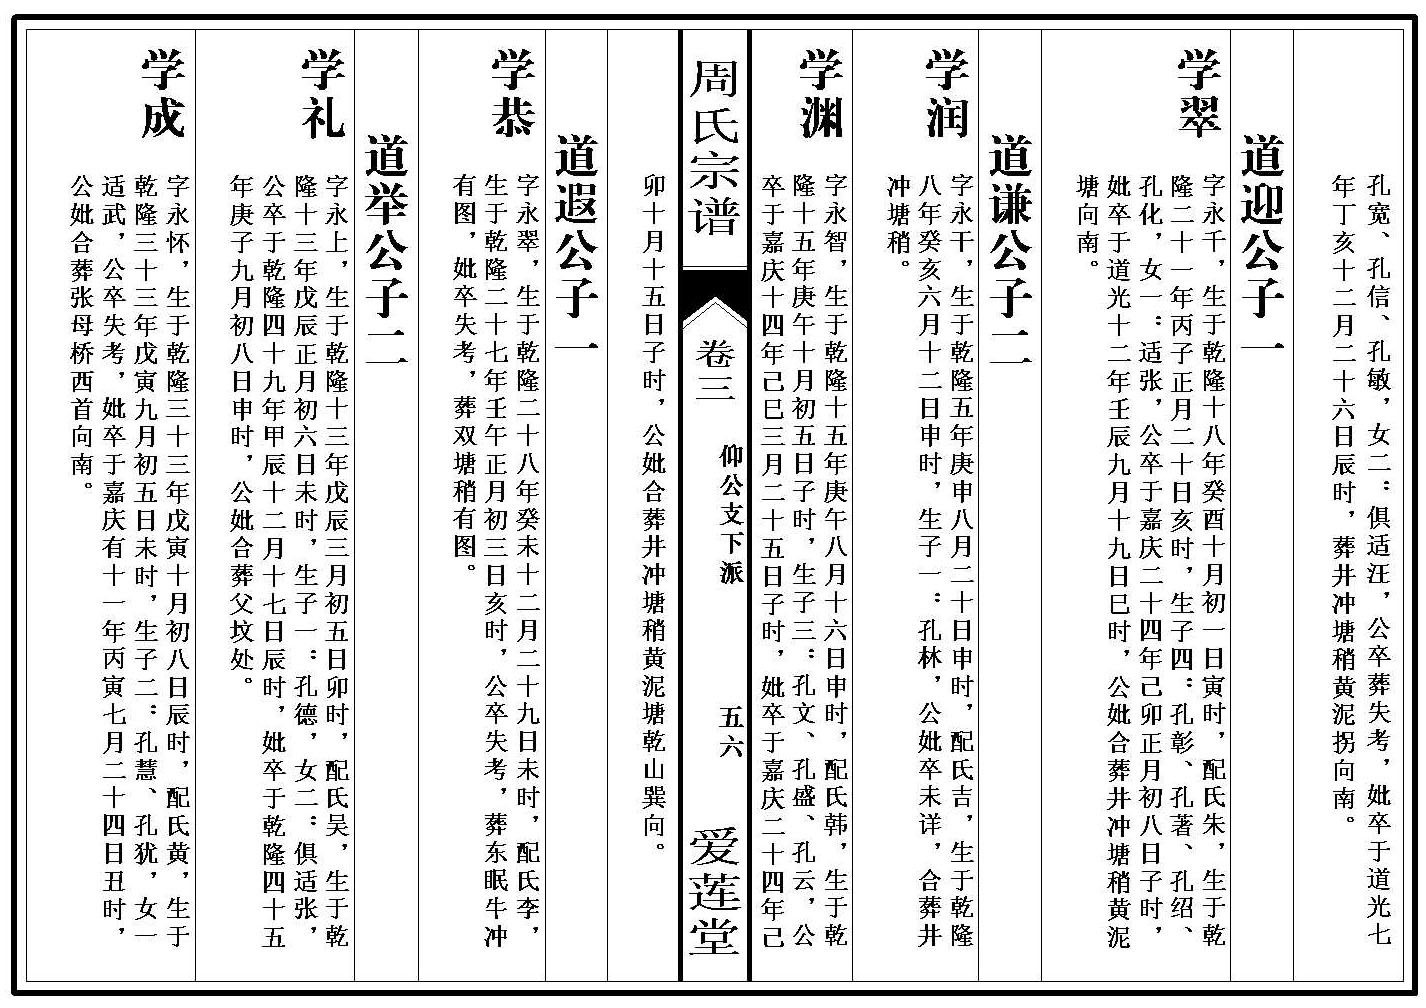 孔宽、孔信、孔敏，女二：俱适汪，公卒葬失考，妣卒于道光七
年丁亥十二月二十六日辰时，葬井冲塘稍黄泥拐向南。
道迎公子一
学翠
字永千，生于乾隆十八年癸酉十月初一日寅时，配氏朱，生于乾
隆二十一年丙子正月二十日亥时，生子四：孔彰、孔著、孔绍、
孔化，女一：适张，公卒于嘉庆二十四年己卯正月初八日子时，
妣卒于道光十二年壬辰九月十九日巳时，公妣合葬井冲塘稍黄泥
塘向南。
道谦公子二
学润
字永干，生于乾隆五年庚申八月二十日申时，配氏吉，生于乾隆
八年癸亥六月十二日申时，生子一：孔林，公妣卒未详，合葬井
冲塘稍。
学渊
字永智，生于乾隆十五年庚午八月十六日申时，配氏韩，生于乾
隆十五年庚午十月初五日子时，生子三：孔文、孔盛、孔云，公
卒于嘉庆十四年己巳三月二十五日子时，妣卒于嘉庆二十四年己
周氏宗谱
卷三
仰公支下派
五六
爱莲堂
卯十月十五日子时，公妣合葬井冲塘稍黄泥塘乾山巽向。
道遐公子一
学恭
字永翠，生于乾隆二十八年癸未十二月二十九日未时，配氏李，
生于乾隆二十七年壬午正月初三日亥时，公卒失考，葬东眠牛冲
有图，妣卒失考，葬双塘稍有图。
道举公子二
学礼
字永上，生于乾隆十三年戊辰三月初五日卯时，配氏吴，生于乾
隆十三年戊辰正月初六日未时，生子一：孔德，女二：俱适张，
公卒于乾隆四十九年甲辰十二月十七日辰时，妣卒于乾隆四十五
年庚子九月初八日申时，公妣合葬父坟处。
学成
字永怀，生于乾隆三十三年戊寅十月初八日辰时，配氏黄，生于
乾隆三十三年戊寅九月初五日未时，生子二：孔慧、孔犹，女一
适武，公卒失考，妣卒于嘉庆有十一年丙寅七月二十四日丑时，
公妣合葬张母桥西首向南。